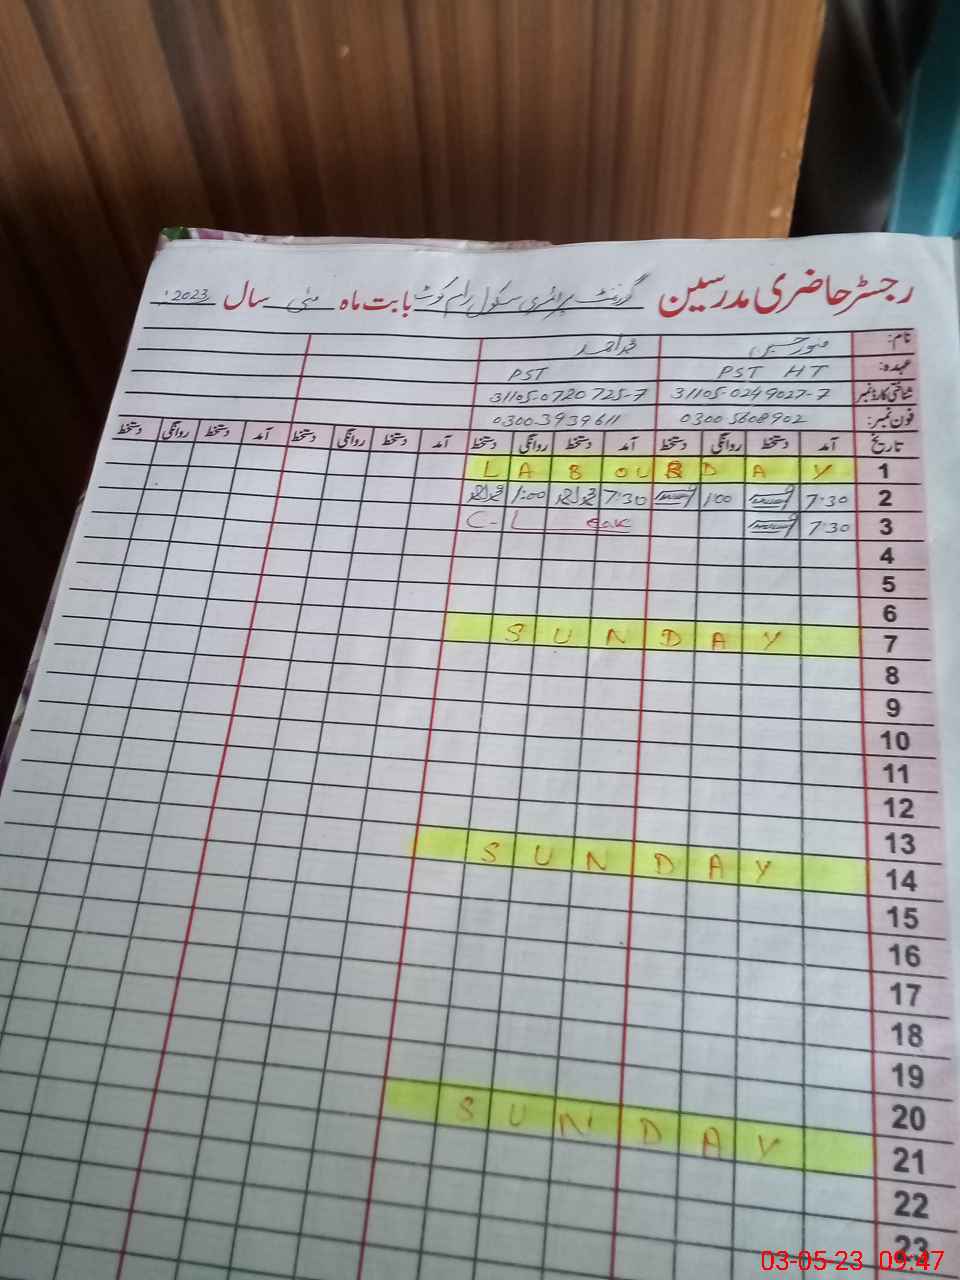 رجسٹر حاضری مدرسین گورنمنٹ پرائمری سکول رام کوٹ بابت ماہ مئی سال 2023ء
نام: منور حسین محمد احمد
عہدہ: PST HT PST
شناختی کارڈ نمبر 31105-0249027-7 31105-0720725-7
فون نمبر: 0300 5608902 0300-3939611
تاریخ آمد دستخط روانگی دستخط آمد دستخط روانگی دستخط آمد دستخط روانگی دستخط آمد دستخط روانگی دستخط
1 LABOUR DAY
2 7:30 1:00 7:30 1:00
3 7:30 C-L
4
5
6
7 SUNDAY
8
9
10
11
12
13
14 SUNDAY
15
16
17
18
19
20
21 SUNDAY
22
23
03-05-23 09:47